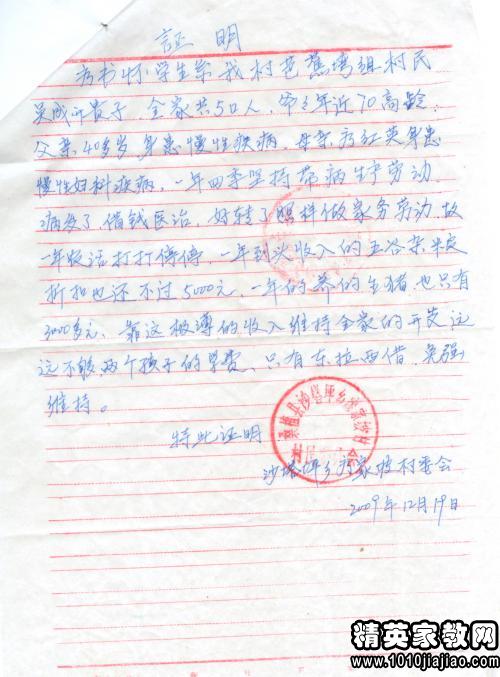 証明
书怀学生系我村芭蕉湾组村民
之子,全家共5口人,爷爷年近70高龄;
父亲40多岁,身患慢性疾病,母亲 红英身患
慢性妇科疾病,一年四季坚持带病生产劳动,
病发了,借钱医治,好转了照样做家务劳动,故
一年农活打打停停,一年到头收入的五谷杂粮
折扣也还不过5000元,一年的养的生猪也只有
3000多元,靠这极薄的收入维持全家的开支远
远不够两个孩子的学费,只有东拉西借,免强
维持。
特此证明
桑植县沙塔坪乡 家坡村
沙塔坪乡 家坡村委会
2009年12月19日
精英家教网
www.1010jiajiao.com